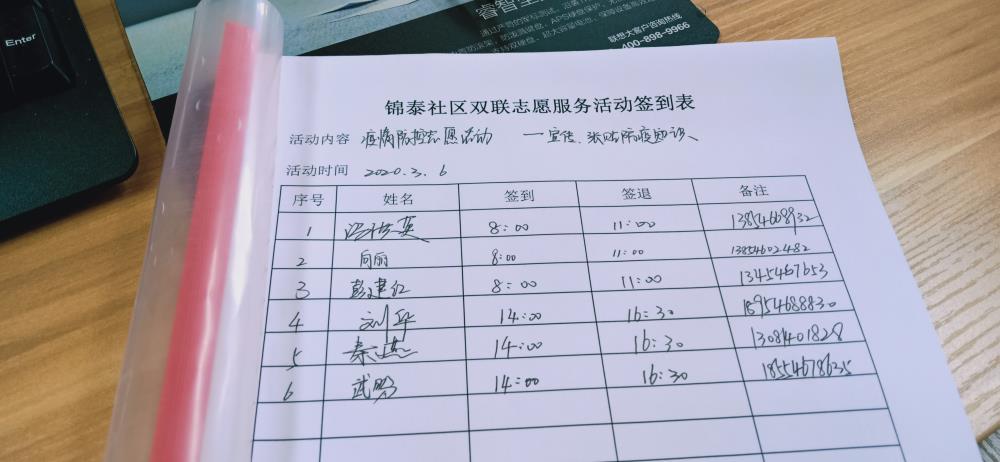 Enter
睿智
联想大客户咨询热线
400-898-9966
锦泰社区双联志愿服务活动签到表
活动内容 疫情防控志愿活动 — 宣传、张贴防疫知识
活动时间 2020.3.6
序号 姓名 签到 签退 备注
1 8:00 11:00 13854668932
2 向丽 8:00 11:00 13854602482
3 彭建红 8:00 11:00 1345467653
4 刘华 14:00 16:30 18954688830
5 秦燕 14:00 16:30 13081401828
6 武 14:00 16:30 18554678635